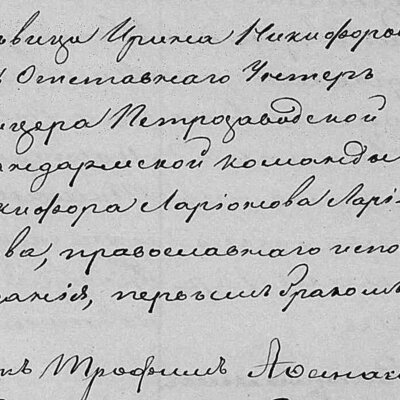 ѣвица Ирина Никифоров
ъ Отставнаго Унтеръ
ицера Петрозаводской
андармской команды
икифора Ларіонова Ларі
ва, православнаго испо
данія, первымъ бракомъ
къ Трофимъ Аѳанас